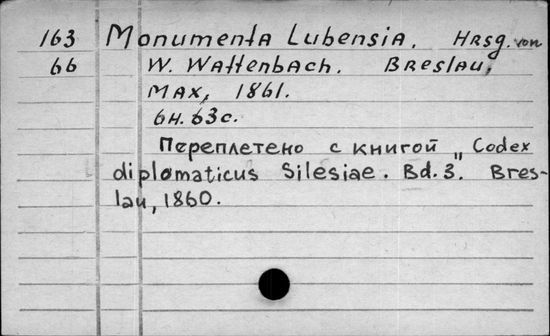 163 Monumenta Lubensia. Hrsg. von
66 W. Wattenbach. Breslau,
Max, 1861.
6н. 63с.
Переплетено с книгой „Codex
diplomaticus Silesiae. Bd. 3. Bres-
lau, 1860.